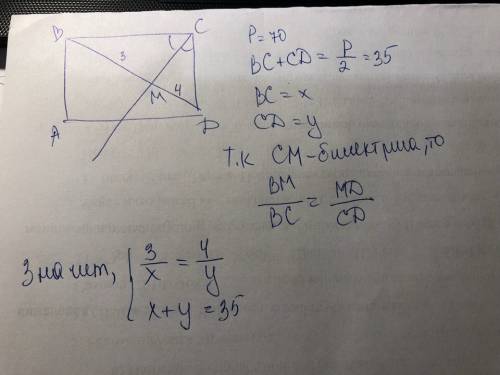 B
C
3
4
M
A
D
P = 70
BC + CD = P/2 = 35
BC = x
CD = y
Т.к CM - биссектриса, то
BM/BC = MD/CD
Значит, { 3/x = 4/y
x + y = 35